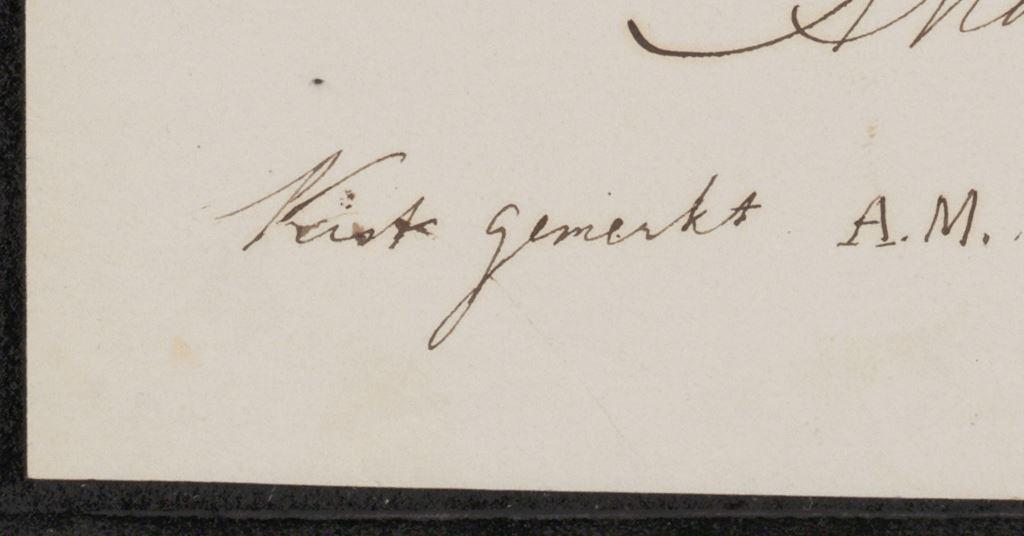 Kist gemerkt A.M.